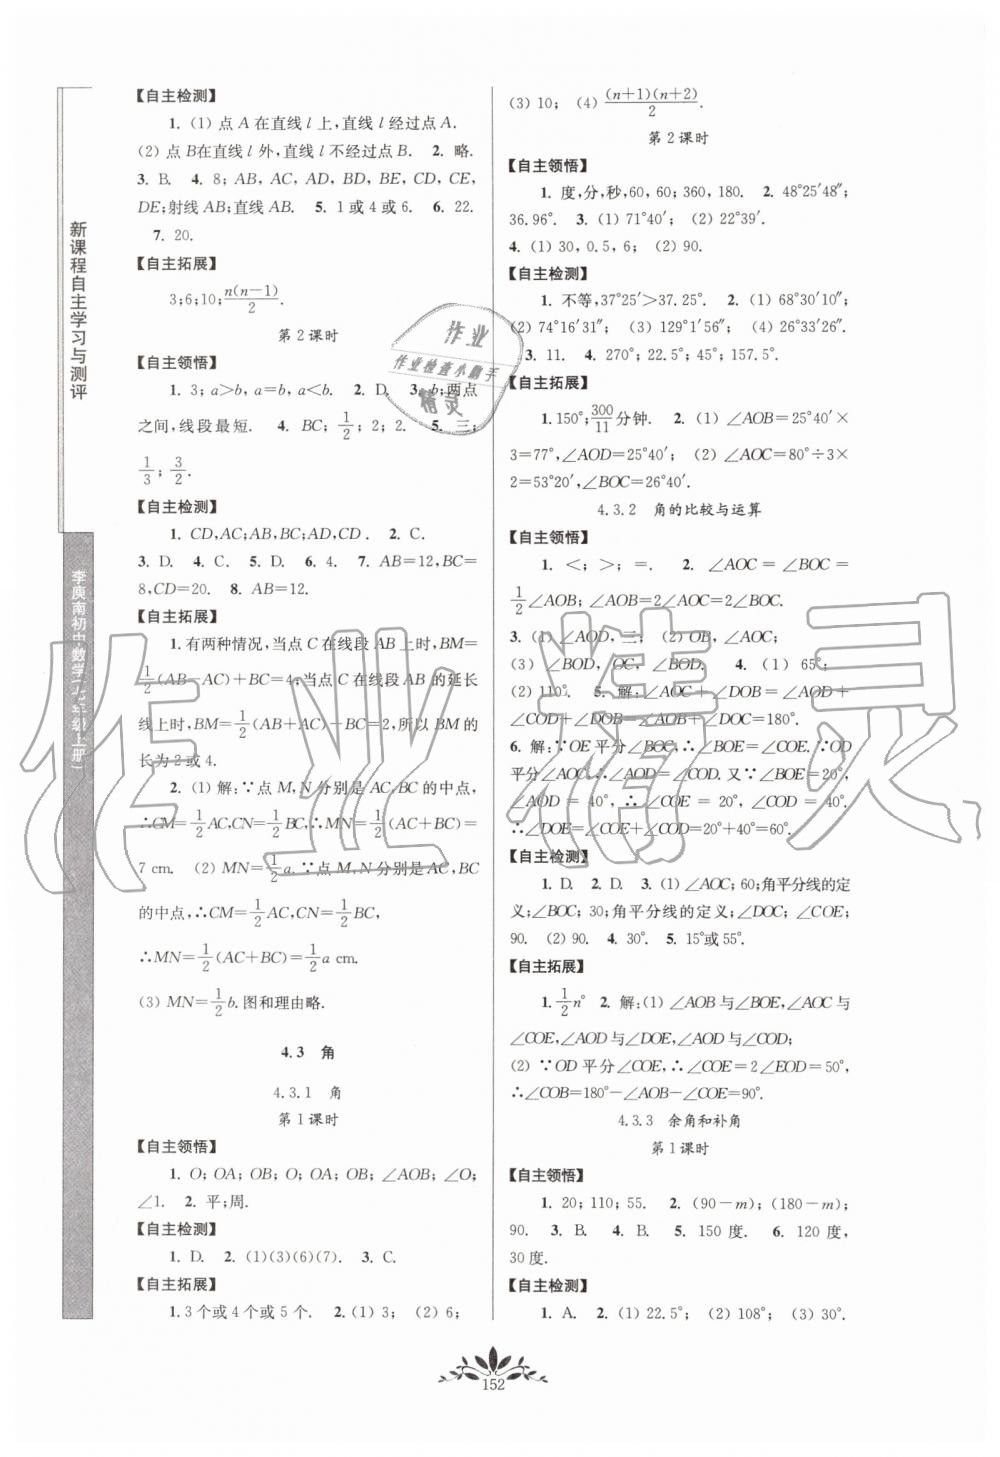 新课程自主学习与测评
李庾南初中数学(七年级上册)
【自主检测】
1. (1) 点 A 在直线 l 上,直线 l 经过点 A.
(2) 点 B在直线 l 外,直线 l 不经过点 B. 2. 略.
3. B. 4. 8; AB, AC, AD, BD, BE, CD, CE,
DE;射线 AB;直线 AB. 5. 1 或 4 或 6. 6. 22.
7. 20.
【自主拓展】
3;6;10;n(n−1)/2.
第 2 课时
【自主领悟】
1. 3; a>b, a=b, a<b. 2. D. 3. b;两点
之间,线段最短. 4. BC; 1/2; 2; 2. 5. 三;
1/3; 3/2.
【自主检测】
1. CD,AC;AB,BC;AD,CD. 2. C.
3. D. 4. C. 5. D. 6. 4. 7. AB=12,BC=
8,CD=20. 8. AB=12.
【自主拓展】
1. 有两种情况,当点 C 在线段 AB 上时,BM=
1/2(AB−AC)+BC=4;当点 C 在线段 AB 的延长
线上时,BM=1/2(AB+AC)−BC=2,所以 BM 的
长为 2 或 4.
2. (1) 解:∵点 M,N 分别是 AC,BC 的中点,
∴CM=1/2AC,CN=1/2BC,∴MN=1/2(AC+BC)=
7 cm. (2) MN=1/2a.∵点 M,N 分别是 AC,BC
的中点,∴CM=1/2AC,CN=1/2BC,
∴MN=1/2(AC+BC)=1/2a cm.
(3) MN=1/2b.图和理由略.
4.3 角
4.3.1 角
第 1 课时
【自主领悟】
1. O; OA; OB; O; OA; OB; ∠AOB; ∠O;
∠1. 2. 平;周.
【自主检测】
1. D. 2. (1)(3)(6)(7). 3. C.
【自主拓展】
1. 3 个或 4 个或 5 个. 2. (1) 3; (2) 6;
(3) 10; (4) (n+1)(n+2)/2.
第 2 课时
【自主领悟】
1. 度,分,秒,60,60;360,180. 2. 48°25′48″,
36.96°. 3. (1) 71°40′; (2) 22°39′.
4. (1) 30,0.5,6; (2) 90.
【自主检测】
1. 不等,37°25′>37.25°. 2. (1) 68°30′10″;
(2) 74°16′31″; (3) 129°1′56″; (4) 26°33′26″.
3. 11. 4. 270°; 22.5°; 45°; 157.5°.
【自主拓展】
1. 150°;300/11分钟. 2. (1) ∠AOB=25°40′×
3=77°,∠AOD=25°40′; (2) ∠AOC=80°÷3×
2=53°20′,∠BOC=26°40′.
4.3.2 角的比较与运算
【自主领悟】
1. <; >; =. 2. ∠AOC = ∠BOC =
1/2∠AOB; ∠AOB=2∠AOC=2∠BOC.
3. (1) ∠AOD,三; (2) OB, ∠AOC;
(3) ∠BOD, OC, ∠BOD. 4. (1) 65°;
(2) 110°. 5. 解:∠AOC + ∠DOB = ∠AOD +
∠COD+∠DOB=∠AOB+∠DOC=180°.
6. 解:∵OE 平分∠BOC,∴∠BOE=∠COE.∵OD
平分∠AOC,∴∠AOD=∠COD.又∵∠BOE=20°,
∠AOD = 40°, ∴ ∠COE = 20°, ∠COD = 40°.
∴∠DOE=∠COE+∠COD=20°+40°=60°.
【自主检测】
1. D. 2. D. 3. (1) ∠AOC; 60;角平分线的定
义;∠BOC; 30;角平分线的定义;∠DOC; ∠COE;
90. (2) 90. 4. 30°. 5. 15°或 55°.
【自主拓展】
1. 1/2n° 2. 解:(1) ∠AOB 与∠BOE,∠AOC 与
∠COE,∠AOD 与∠DOE,∠AOD 与∠COD;
(2) ∵OD 平分∠COE,∴∠COE=2∠EOD=50°,
∴∠COB=180°−∠AOB−∠COE=90°.
4.3.3 余角和补角
第 1 课时
【自主领悟】
1. 20; 110; 55. 2. (90−m); (180−m);
90. 3. B. 4. B. 5. 150 度. 6. 120 度,
30 度.
【自主检测】
1. A. 2. (1) 22.5°; (2) 108°; (3) 30°.
152
作业
作业检查小帮手
精灵
作业精灵